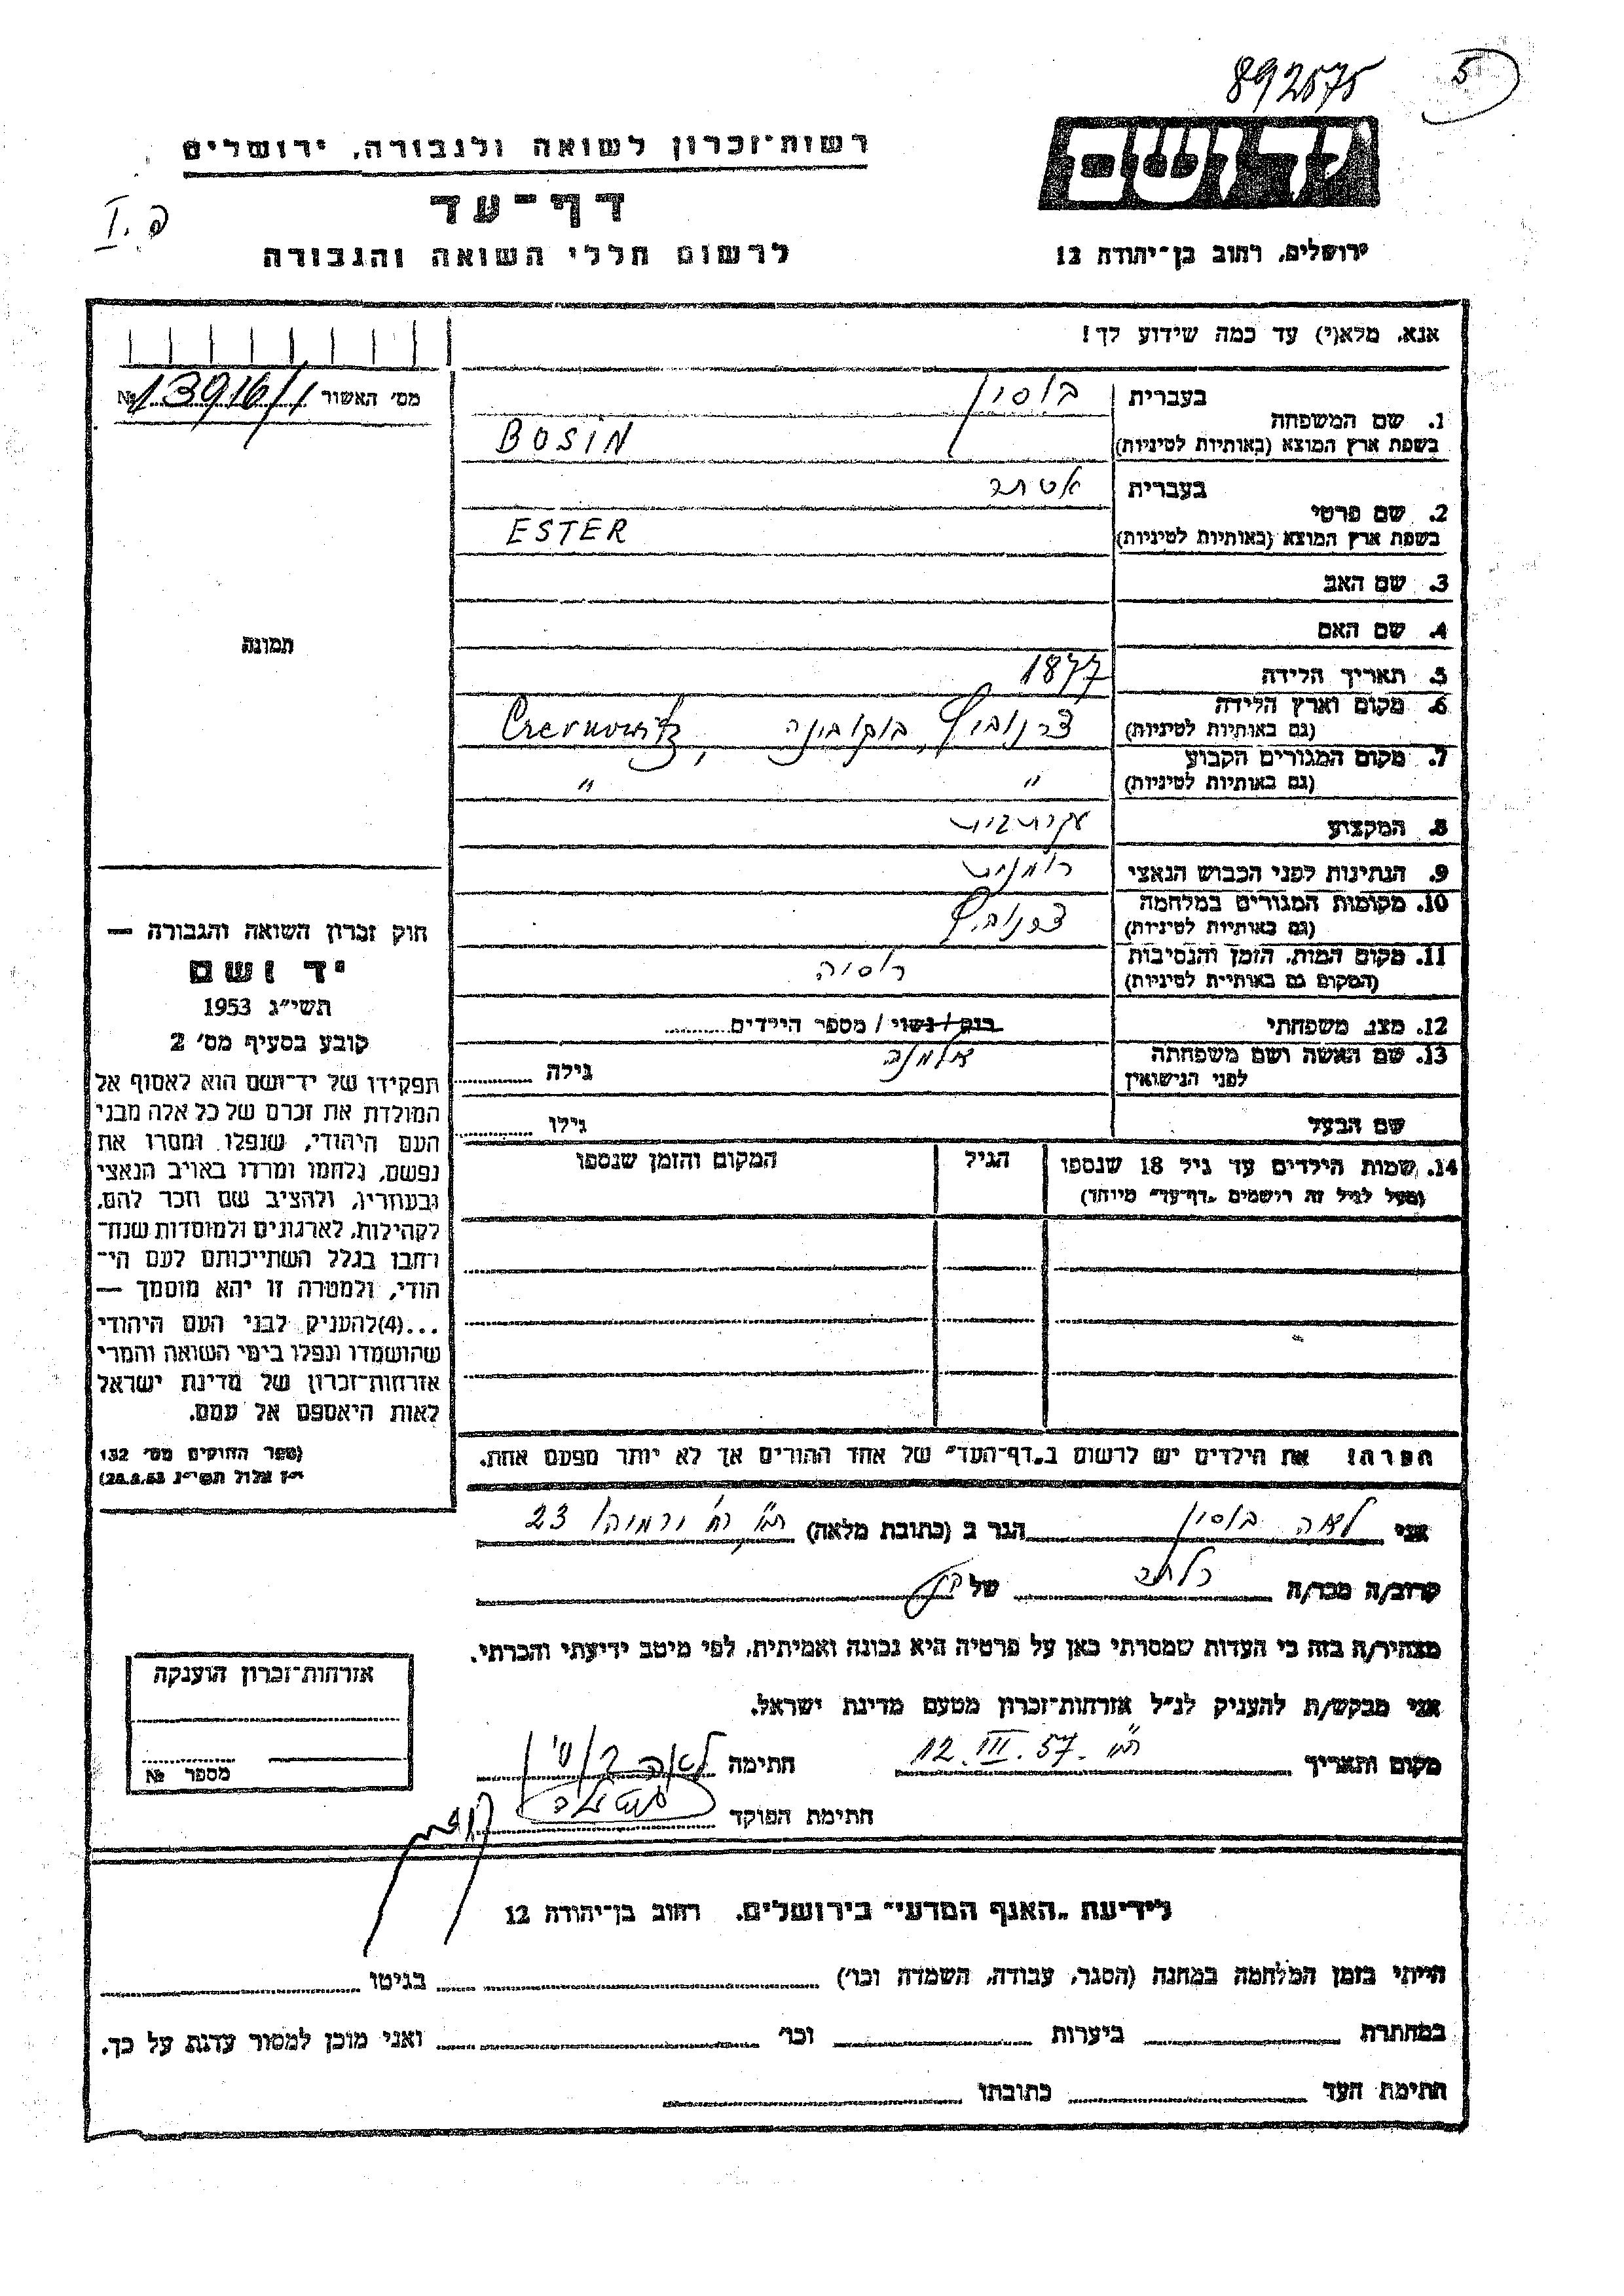 892575
5
יד ושם
רשות־זכרון לשואה ולגבורה, ירושלים
דף־עד
I. פ
לרשום חללי השואה והגבורה
ירושלים, רחוב בן־יהודה 12
אנא, מלא(י) עד כמה שידוע לך!
מס׳ האשור № 13916/1
1. שם המשפחה
בעברית בוסין
בשפת ארץ המוצא (באותיות לטיניות) BOSIN
2. שם פרטי
בעברית אסתר
בשפת ארץ המוצא (באותיות לטיניות) ESTER
3. שם האב
4. שם האם
תמונה
5. תאריך הלידה 1877
6. מקום וארץ הלידה צרנוביץ, בוקובינה, Czernowitz
(גם באותיות לטיניות)
7. מקום המגורים הקבוע
(גם באותיות לטיניות) " "
8. המקצוע עקרת בית
9. הנתינות לפני הכבוש הנאצי רומנית
10. מקומות המגורים במלחמה צרנוביץ
(גם באותיות לטיניות)
11. מקום המות, הזמן והנסיבות רוסיה
(המקום גם באותיות לטיניות)
12. מצב משפחתי רווק / נשוי / מספר הילדים
13. שם האשה ושם משפחתה אלמנה גילה
לפני הנישואין
שם הבעל גילו
14. שמות הילדים עד גיל 18 שנספו הגיל המקום והזמן שנספו
(מעל לגיל זה רושמים „דף־עד״ מיוחד)
חוק זכרון השואה והגבורה —
יד ושם
תשי״ג 1953
קובע בסעיף מס׳ 2
תפקידו של יד־ושם הוא לאסוף אל
המולדת את זכרם של כל אלה מבני
העם היהודי, שנפלו ומסרו את
נפשם, נלחמו ומרדו באויב הנאצי
ובעוזריו, ולהציב שם וזכר להם,
לקהילות, לארגונים ולמוסדות שנח־
רחבו בגלל השתייכותם לעם הי־
הודי, ולמטרה זו יהא מוסמך —
...(4) להעניק לבני העם היהודי
שהושמדו ונפלו בימי השואה והמרי
אזרחות־זכרון של מדינת ישראל
לאות היאספם אל עמם.
(ספר החוקים מס׳ 132
י״ז אלול תשי״ג 28.8.53)
הערה! את הילדים יש לרשום ב„דף־העד״ של אחד ההורים אך לא יותר מפעם אחת.
אני לאה בוסין הגר ב (כתובת מלאה) 23
קרוב/ה מכר/ה כלתה של הנ״ל
מצהיר/ה בזה כי העדות שמסרתי כאן על פרטיה היא נכונה ואמיתית, לפי מיטב ידיעתי והכרתי.
אני מבקש/ת להעניק לנ״ל אזרחות־זכרון מטעם מדינת ישראל.
מקום ותאריך 12.III.57 חתימה לאה
חתימת הפוקד
אזרחות־זכרון הוענקה
מספר №
לידיעת „האגף המדעי״ בירושלים, רחוב בן־יהודה 12
הייתי בזמן המלחמה במחנה (הסגר, עבודה, השמדה וכו׳) בגיטו
במחתרת ביערות וכו׳ ואני מוכן למסור עדות על כך.
חתימת העד כתובתו